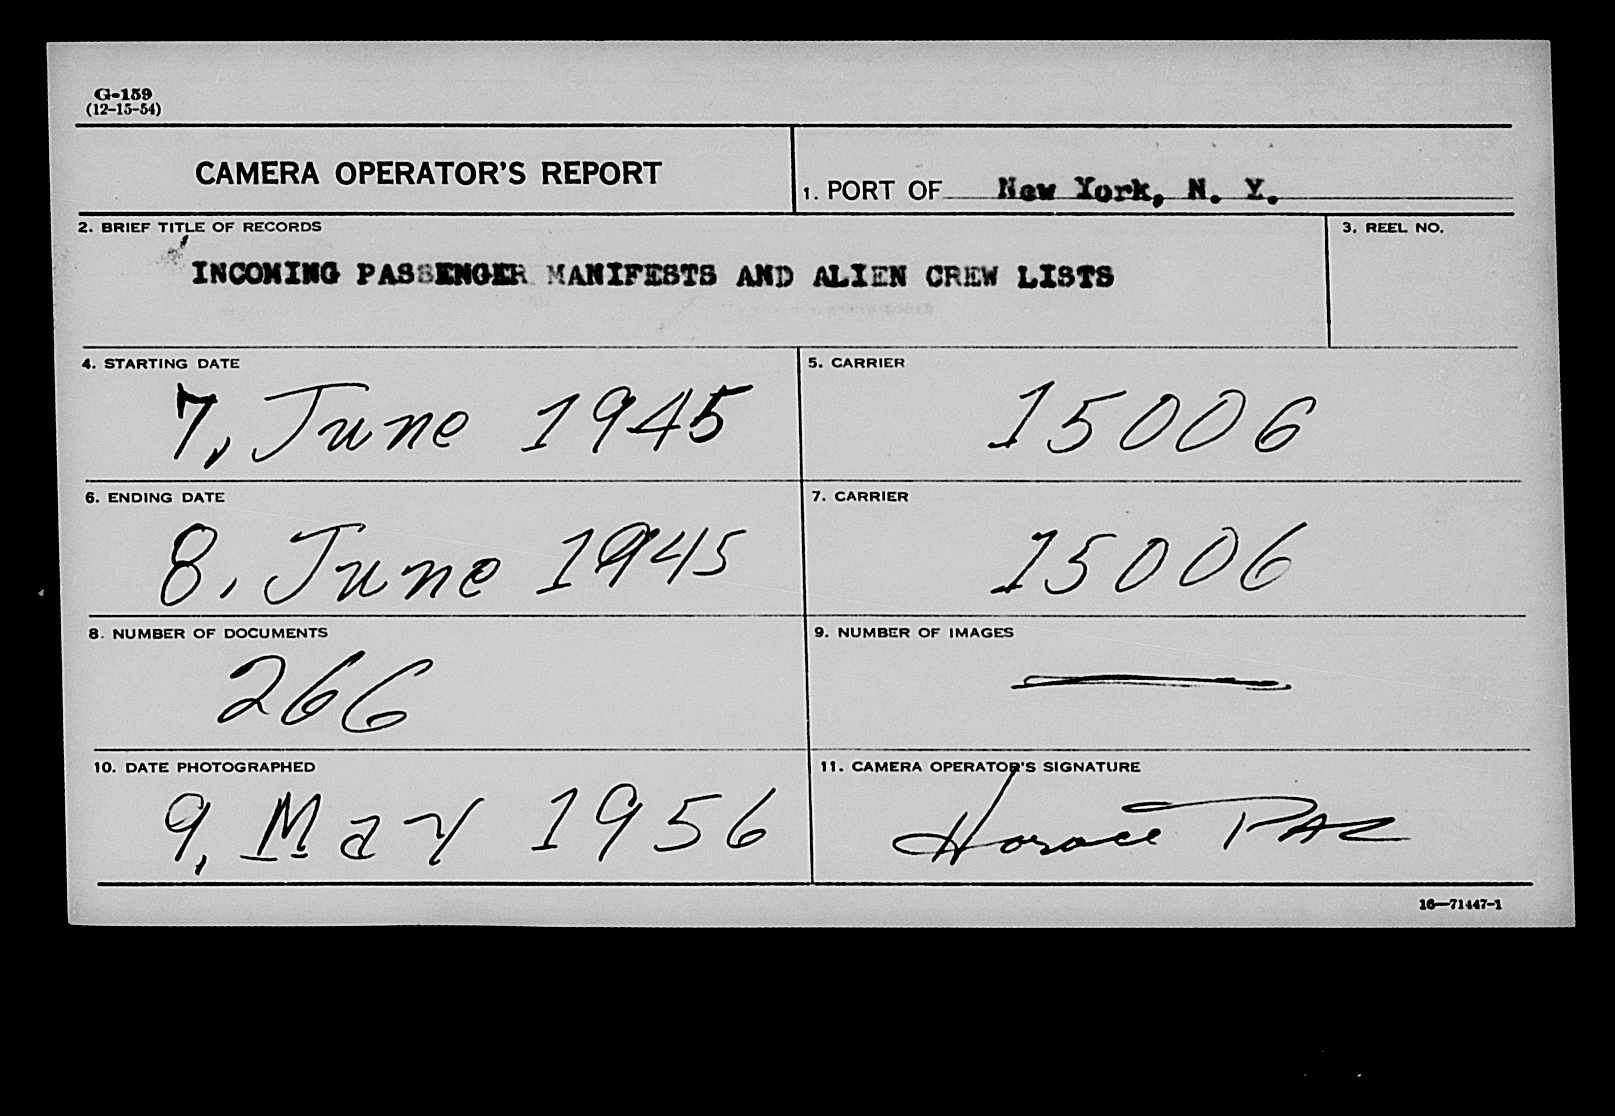 G-159
(12-15-54)
CAMERA OPERATOR'S REPORT
1. PORT OF New York, N. Y.
2. BRIEF TITLE OF RECORDS
3. REEL NO.
INCOMING PASSENGER MANIFESTS AND ALIEN CREW LISTS
4. STARTING DATE
5. CARRIER
7, June 1945
15006
6. ENDING DATE
7. CARRIER
8, June 1945
15006
8. NUMBER OF DOCUMENTS
9. NUMBER OF IMAGES
266
10. DATE PHOTOGRAPHED
11. CAMERA OPERATOR'S SIGNATURE
9, May 1956
Horace
16—71447-1